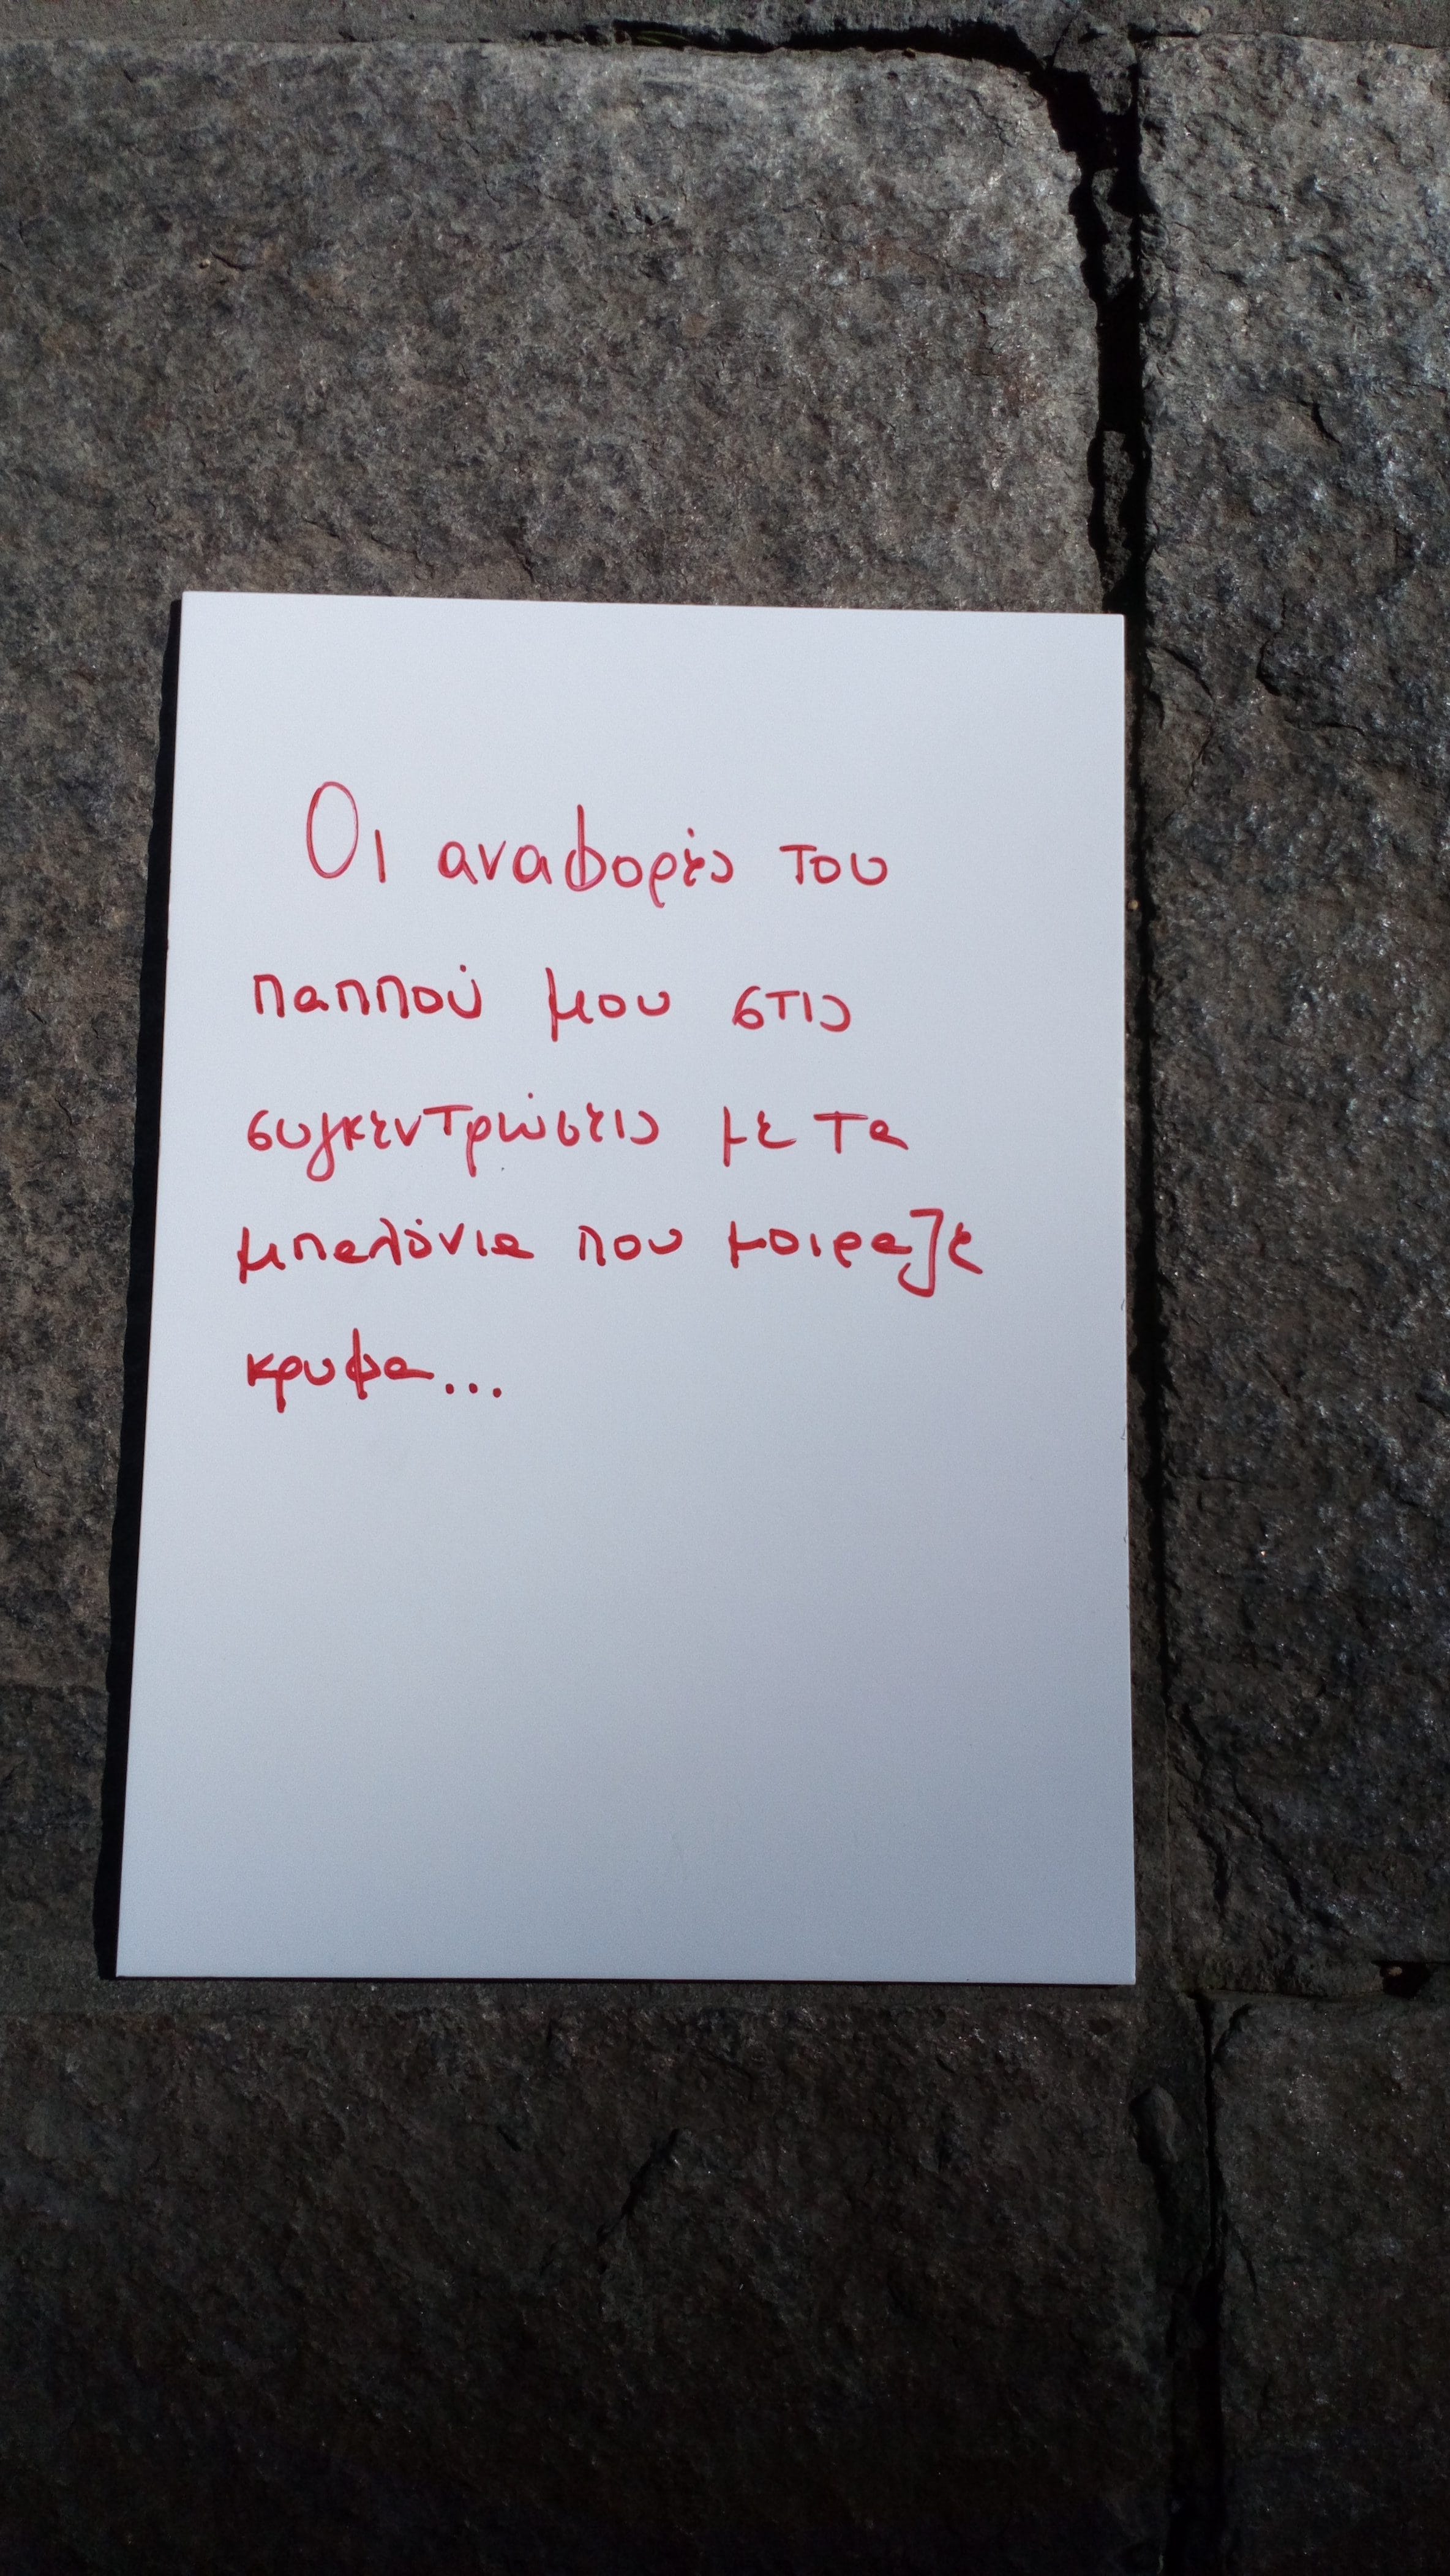 Οι αναφορές του
παππού μου στις
συγκεντρώσεις με τα
μπαλόνια που μοιραζε
κρυφα...